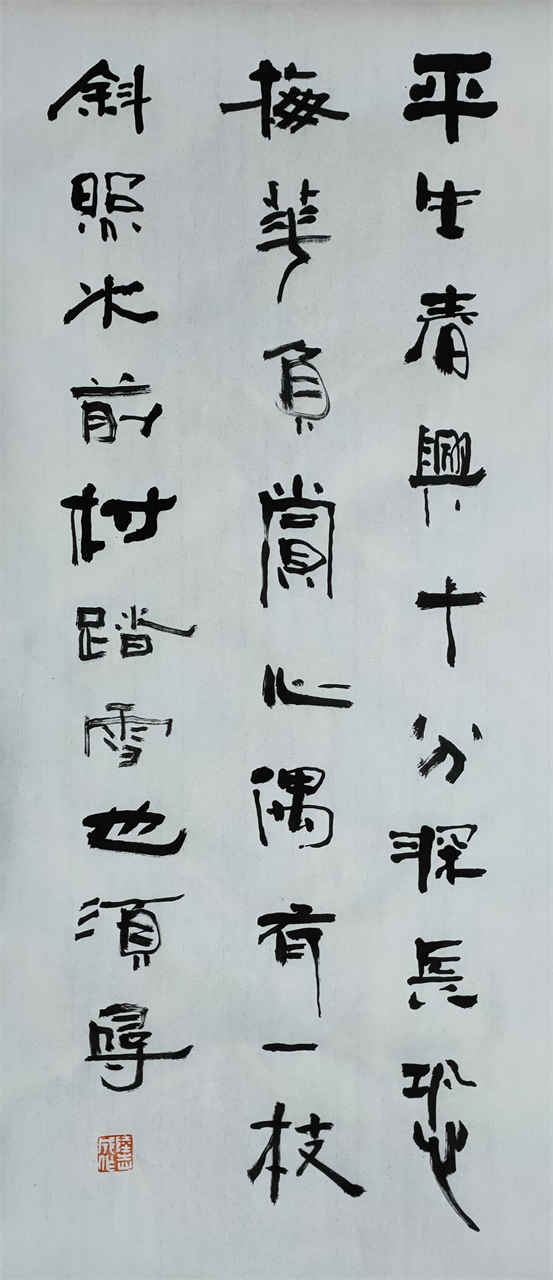 平生春興十分深長恐
梅華負賞心偶有一枝
斜照水前村踏雪也須尋